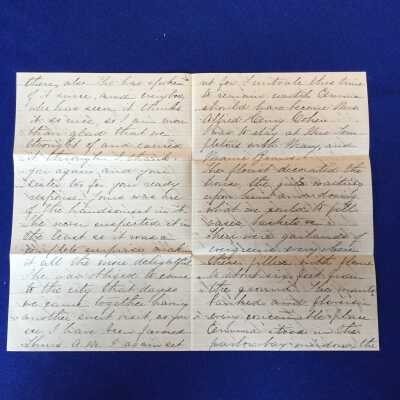 there, also. She has spoken
of it since, and everybody
who has seen it thinks
it so nice, so I am more
than glad that we
thought of and carried
it through. I thank
you again, and your
sister too for your ready
response. Yours was one
of the handsomest in it.
She never suspected it in
the least so it was a
complete surprise, making
it all the more delightful.
She was obliged to come
to the city that day so
we came together having
another short visit, as you
see I have been favored
thus
not for
to remain until Emma
should have become Mrs
Alfred Henry Cohen.
I was to stay at the
with Mary, and
The florist decorated the
house, the girls waiting
upon him and doing
what we could to fill
vases baskets
There were garlands of
evergreen everywhere
these filled with flowers
a about six feet from
the ground. The mantels
banked and flowers in
every conceivable place
Emma stood in the
parlor bay-window, the